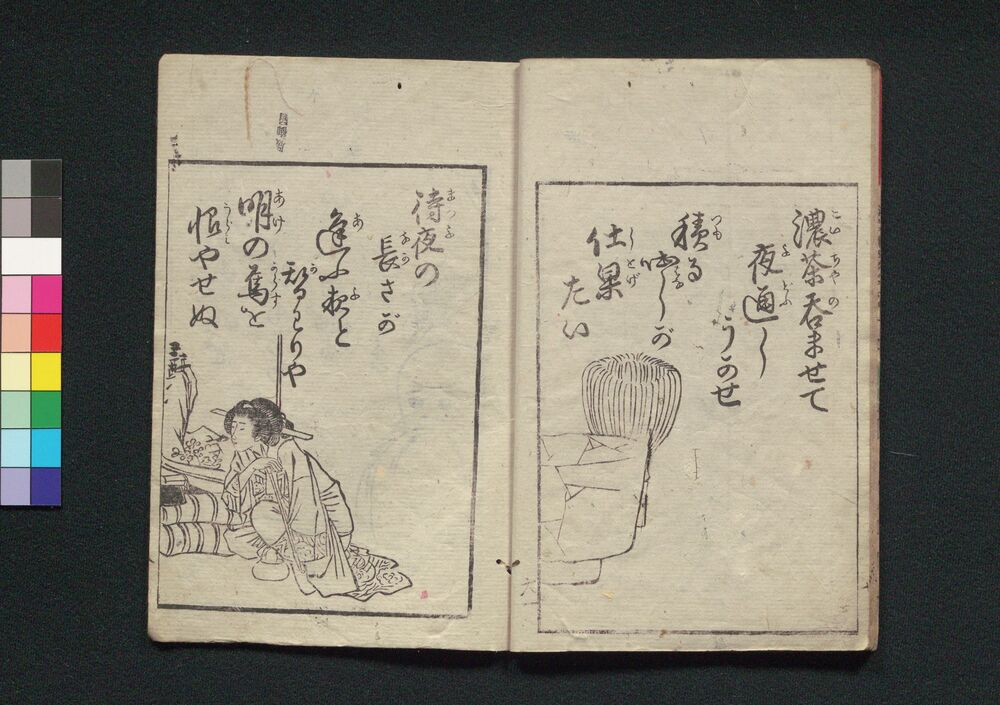 濃茶呑ませて
夜通し
うかせ
積る
咄しが
仕果
たい
待夜の
長さが
逢ふ夜と
替わりや
明の烏を
恨やせぬ